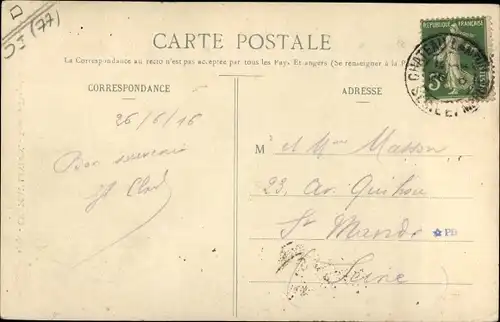 D
DS (77)
CARTE POSTALE
La Correspondance au recto n'est pas acceptée par tous les Pays Etrangers (Se renseigner à la P
CORRESPONDANCE
ADRESSE
RÉPUBLIQUE FRANÇAISE
5
CHATEAU
SEINE
26/6/16
Bon souvenir
M et Mme Masson
23, av. Quihou
St Mandé
PB
(Seine)